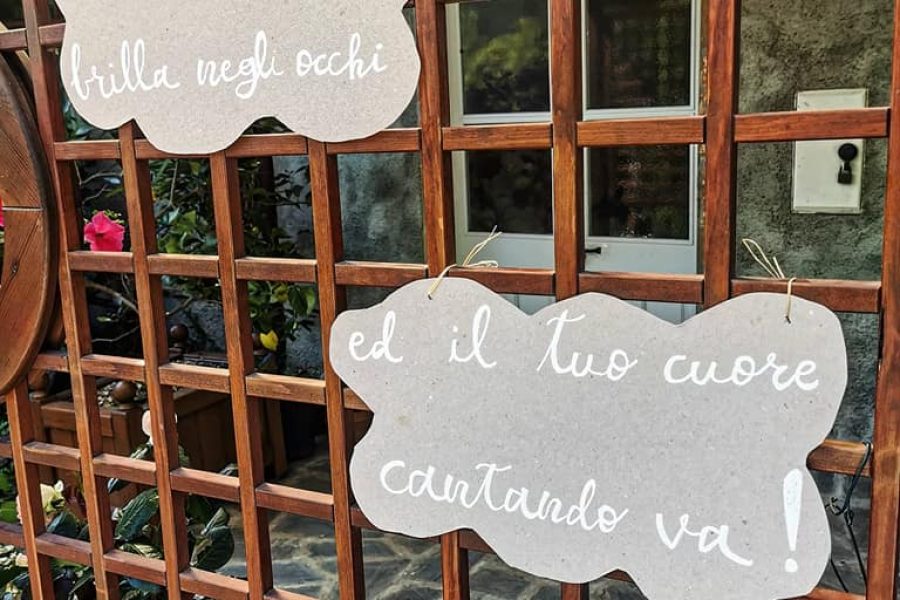 brilla negli occhi
ed il tuo cuore
cantando va!